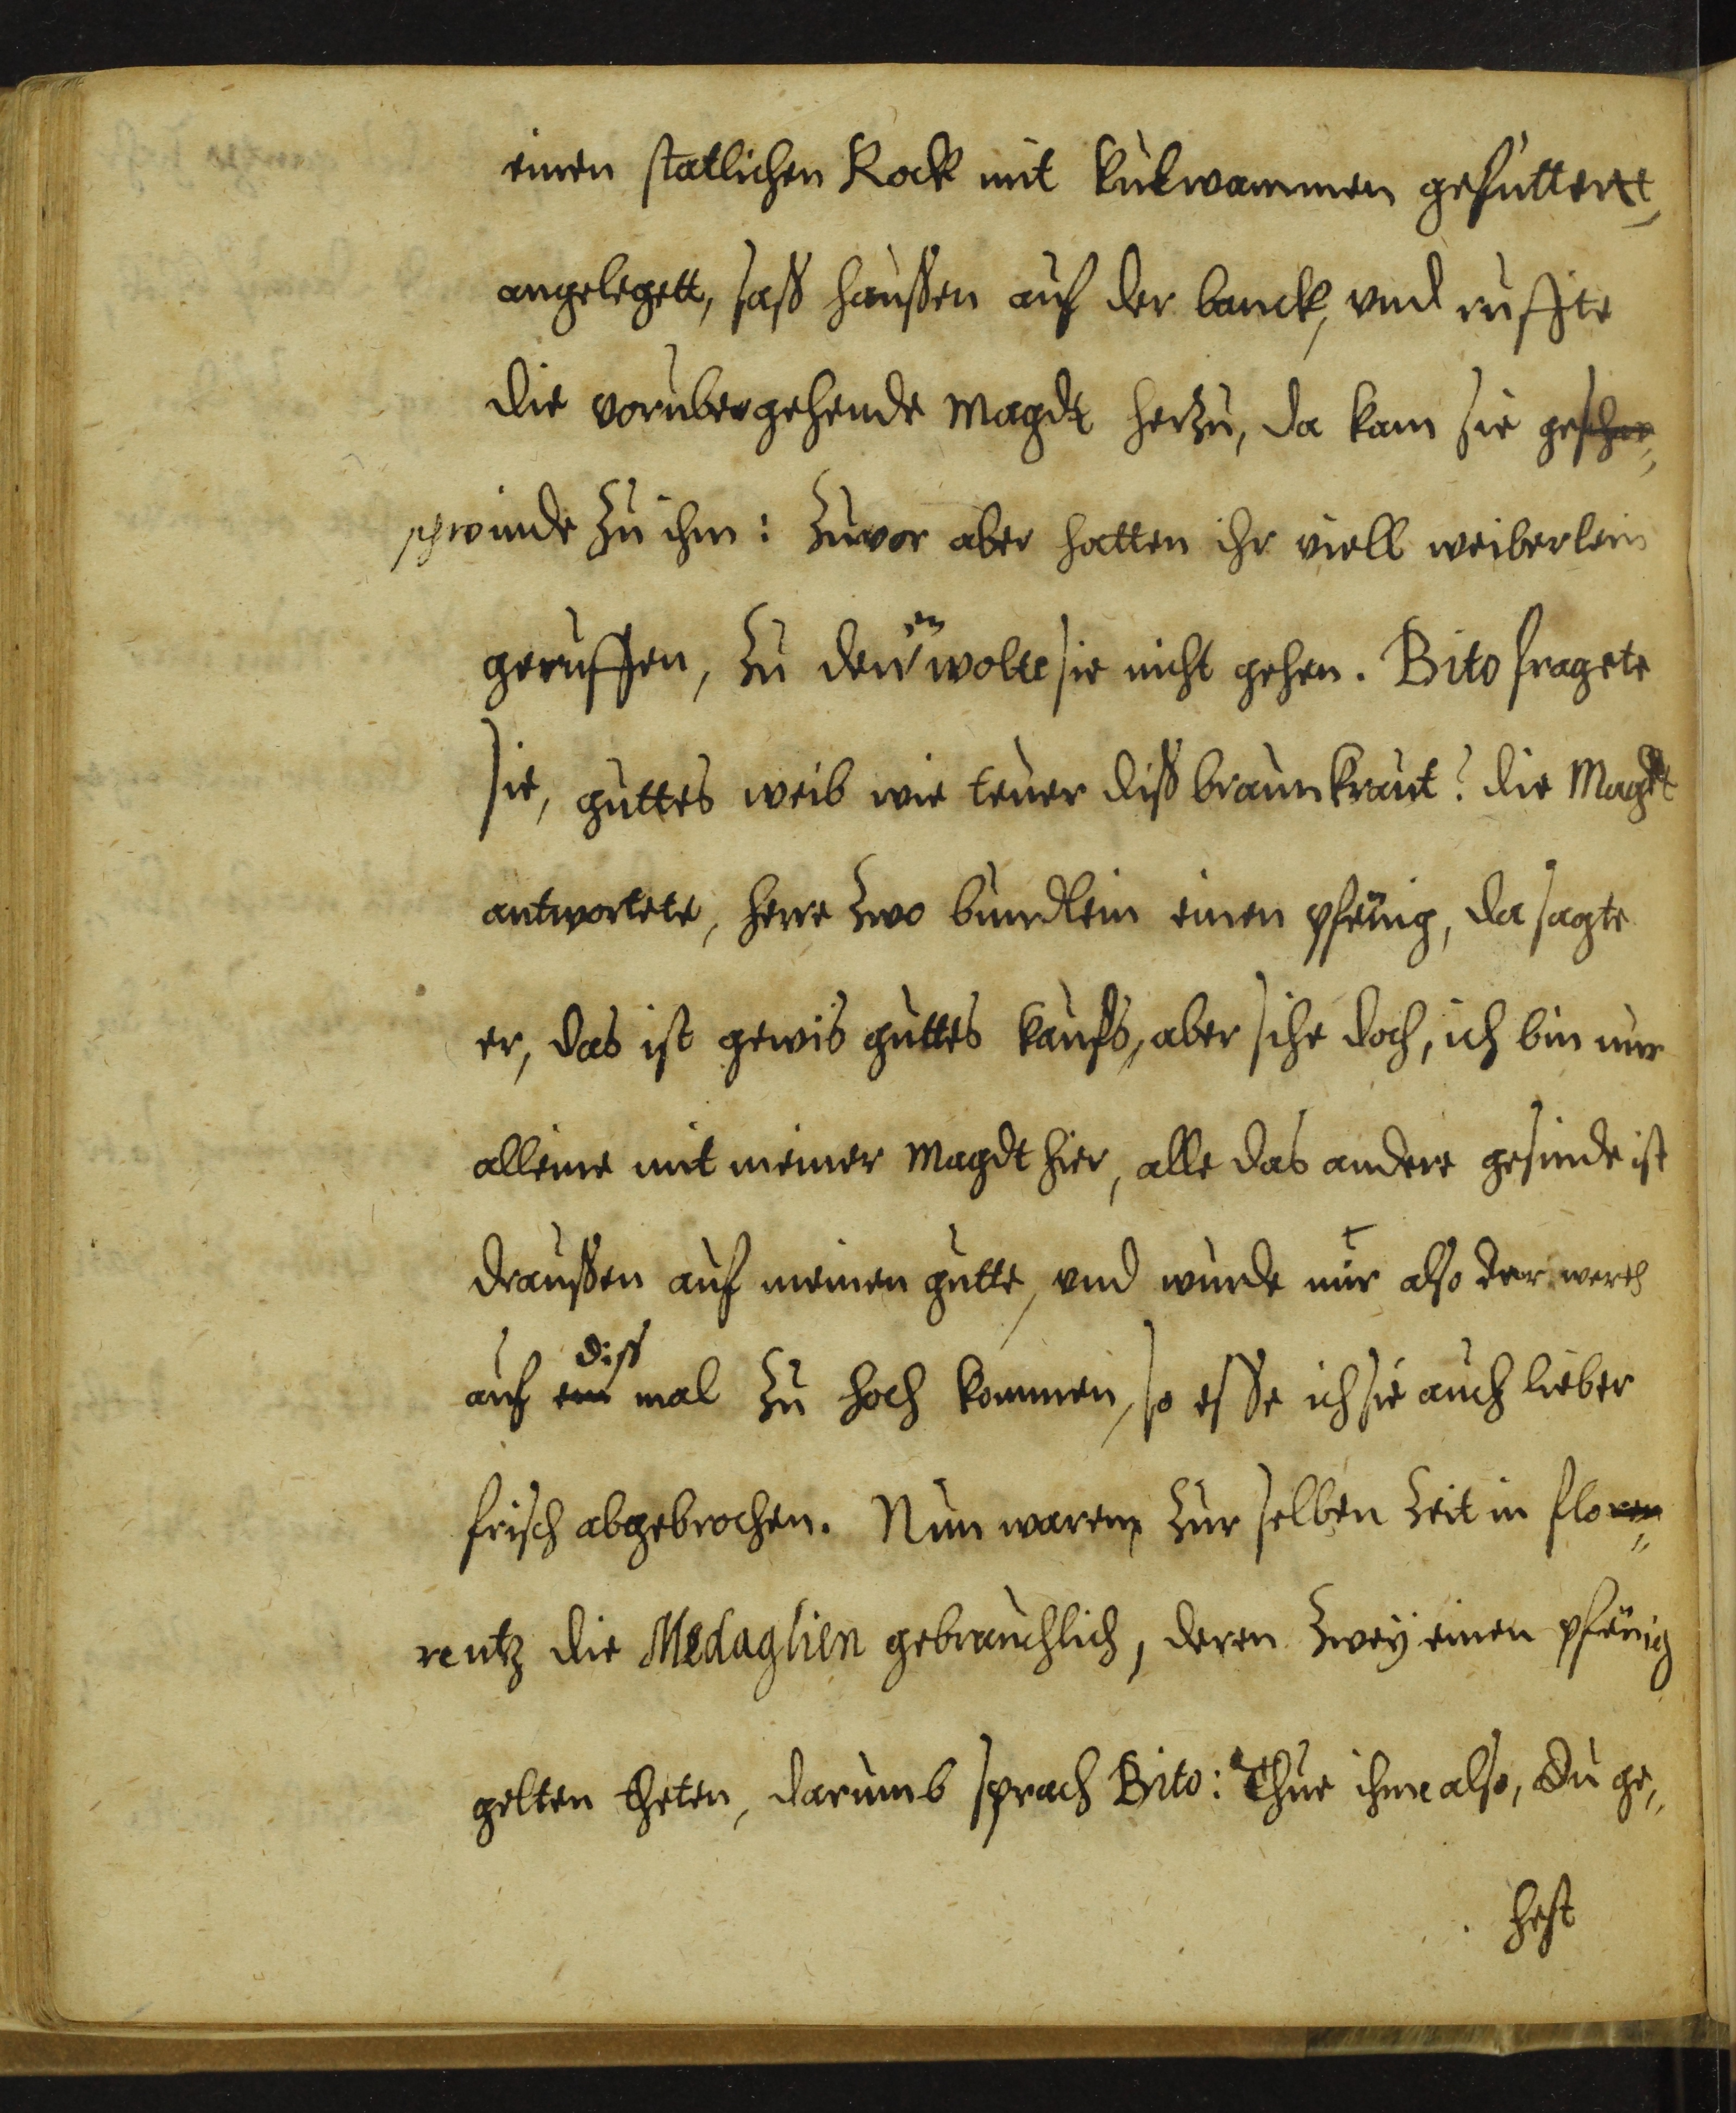 einen statlichen Rock mit kukwammen gefuttertt,
angelegett, saß haußen auf der banck, und ruffte
die vorubergehende Magdt herzu, da kam sie gescher,,
schwinde zu ihm: zuvor aber hatten ihr viell weiberlein
geruffen, zu denen wolte sie nicht gehen. Bito fragete
sie, guttes weib wie teuer diß braunkraut? die Magdt
antwortete, herre zwo bundlein einen pfenig, da sagte
er, das ist gewis guttes kaufs, aber sihe doch, ich bin nur
alleine mit meiner Magdt hier, alle das andere gesinde ist
draußen auf meinen gutte, und wurde mir also der werth
auf ein diß mal zu hoch kommen, so esse ich sie auch lieber
frisch abgebrochen. Nun waren zur selben zeit in floren,,
rentz die Medaglien gebrauchlich, deren zweÿ einen pfenig
gelten theten, darumb sprach Bito: Thue ihme also, du ge,,
hest